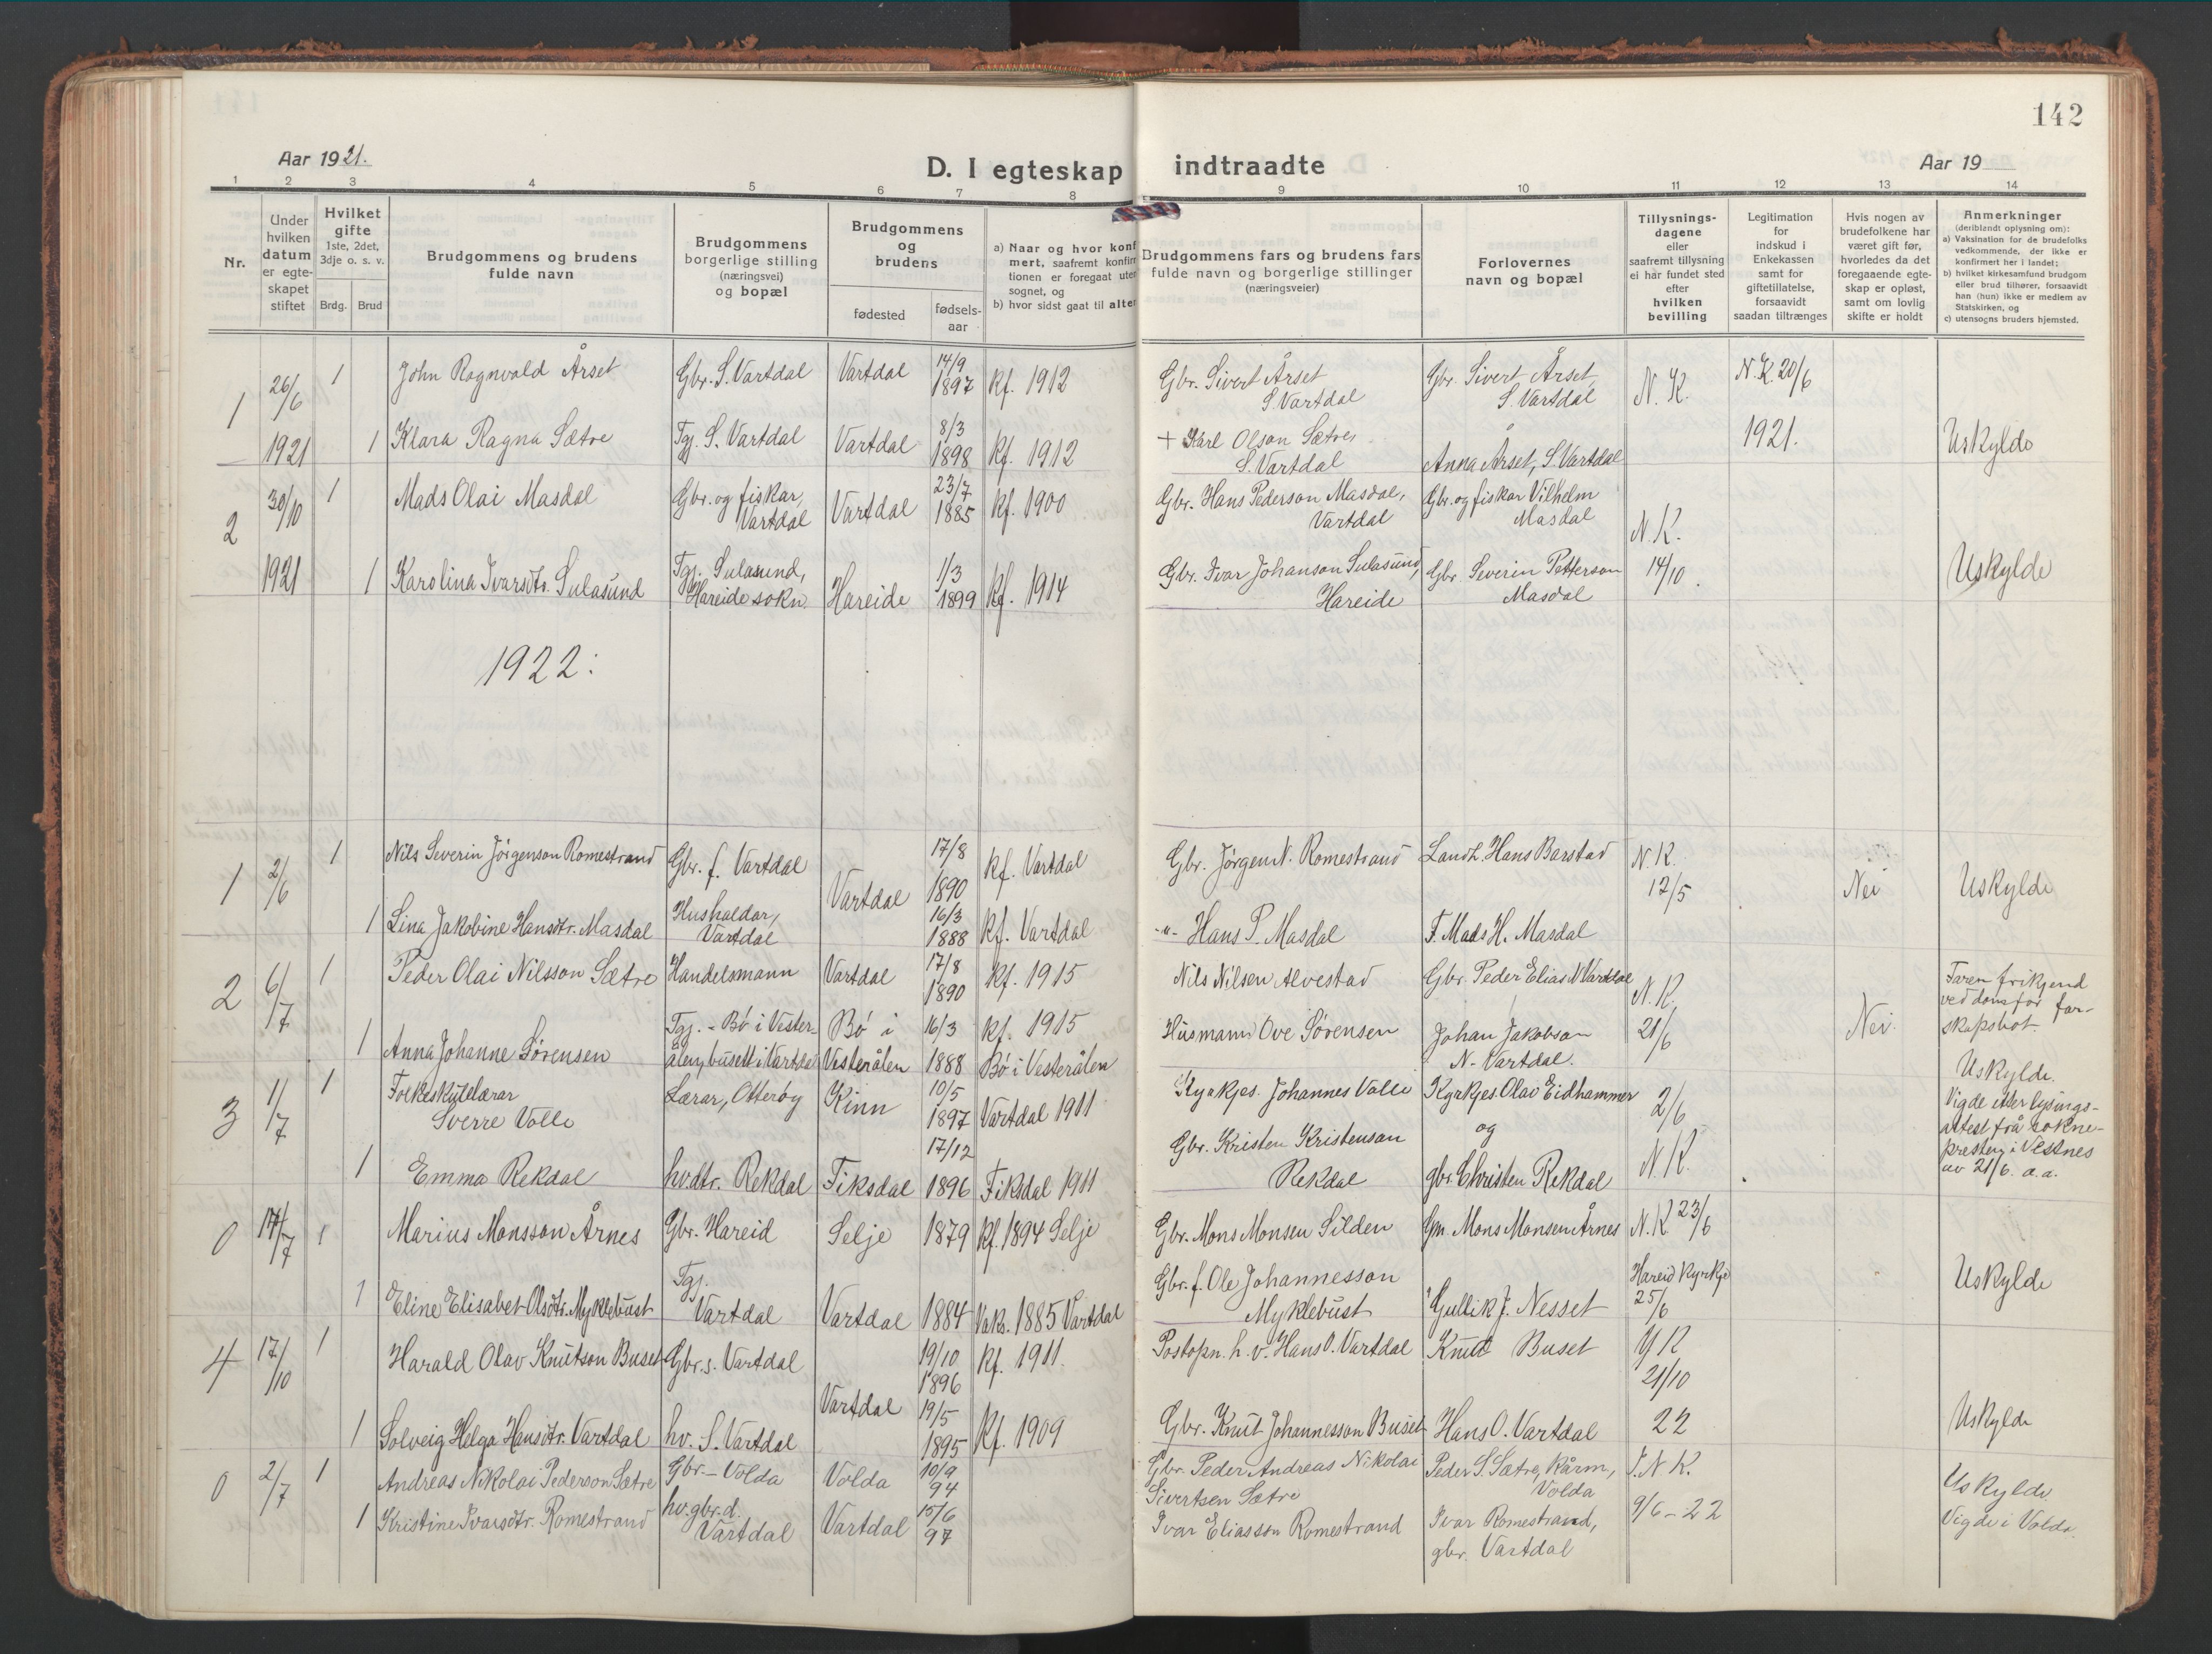 142
Aar 1921.
D. I egteskap indtraadte
Aar 19
1 2 3 4 5 6 7 8 9 10 11 12 13 14
Nr.
Under hvilken datum er egteskapet stiftet
Hvilket gifte 1ste, 2det, 3dje o. s. v.
Brdg. Brud
Brudgommens og brudens fulde navn
Brudgommens borgerlige stilling (næringsvei) og bopæl
Brudgommens og brudens
fødested
fødsels-aar
a) Naar og hvor konf
mert, saafremt konfirm
tionen er foregaat uten
sognet, og
b) hvor sidst gaat til alter
Brudgommens fars og brudens fars
fulde navn og borgerlige stillinger
(næringsveier)
Forlovernes
navn og bopæl
Tillysnings-
dagene
eller
saafremt tillysning
ei har fundet sted
efter
hvilken
bevilling
Legitimation
for
indskud i
Enkekassen
samt for
giftetillatelse,
forsaavidt
saadan tiltrænges
Hvis nogen av
brudefolkene har
været gift før,
hvorledes da det
foregaaende egte-
skap er opløst,
samt om lovlig
skifte er holdt
Anmerkninger
(deriblandt oplysning om):
a) Vaksination for de brudefolks
vedkommende, der ikke er
konfirmert her i landet;
b) hvilket kirkesamfund brudgom
eller brud tilhører, forsaavidt
han (hun) ikke er medlem av
Statskirken, og
c) utensogns bruders hjemsted.
1 26/6 1 John Ragnvald Årset Gbr. S. Vartdal Vartdal 14/9 1897 Kf. 1912 Gbr. Sivert Årset S. Vartdal Gbr. Sivert Årset, S. Vartdal N. K. N. K. 20/6
1921 1 Klara Ragna Sætre Tgj. S. Vartdal Vartdal 8/3 1898 Kf. 1912 + Karl Olson Sætre, S. Vartdal Anna Årset, S. Vartdal 1921. Uskylde
2 30/10 1 Mads Olai Masdal Gbr. og fiskar, Vartdal Vartdal 23/7 1885 Kf. 1900 Gbr. Hans Pederson Masdal, Vartdal Gbr. og fiskar Vilhelm Masdal N. K.
1921 1 Karolina Ivarsdtr. Sulasund Tgj. Sulasund, Hareide sokn Hareide 1/3 1899 Kf. 1914 Gbr. Ivar Johanson Sulasund, Hareide Gbr. Severin Petterson Masdal 14/10. Uskylde
1922:
1 2/6 1 Nils Severin Jörgenson Romestrand Gbr. f. Vartdal Vartdal 17/8 1890 Kf. Vartdal Gbr. Jörgen N. Romestrand Landh. Hans Barstad N. K. 12/5 Nei Uskylde
1 Lina Jakobine Hansdtr. Masdal Hushaldar, Vartdal 16/3 1888 Kf. Vartdal -"- Hans P. Masdal F. Mads H. Masdal
2 6/7 1 Peder Olai Nilsson Sætre Handelsmann Vartdal 17/8 1890 Kf. 1915 Nils Nilsen Alvestad Gbr. Peder Elias N Vartdal N. K. Faren frikjend ved dom for farskapsbot.
1 Anna Johanne Sörensen Tgj. - Bö i Vesterålen, busett i Vartdal Bö i Vesterålen 16/3 1888 Kf. 1915 Bö i Vesterålen Husmann Ove Sörensen Johan Jakobson N- Vartdal. 21/6 Nei. Uskylde.
3 1/7 1 Folkeskulelærar Sverre Valle Lærar, Otteröy Kinn 10/5 1897 Vartdal 1911 Kyrkjes. Johannes Valle Kyrkjes. Olav Eidhammer og 2/6 Vigde etter lysings-attest frå sokne-presten i Vestnes av 21/6. a.a.
1 Emma Rekdal hv.dtr. Rekdal Fiksdal 17/12 1896 Fiksdal 1911 Gbr. Kristen Kristenson Rekdal gbr. Christen Rekdal N. K.
0 14/7 1 Marius Monsson Årnes Gbr. Hareid Selje 1879 Kf. 1894 Selje Gbr. Mons Monsen Silden Gm. Mons Monsen Årnes N. K. 23/6
1 Eline Elisabet Olsdtr. Myklebust Tgj. Vartdal Vartdal 1884 Vaks. 1885 Vartdal Gbr. f. Ole Johannesson Myklebust Gullik J. Nesset Hareid Kyrkje 25/6 Uskylde
4 17/10 1 Harald Olav Knutson Buset Gbr. s. Vartdal Vartdal 19/10 1896 Kf. 1911. Postopn. h. v. Hans O. Vartdal Knut Buset N K 21/10
1 Solveig Helga Hansdtr. Vartdal hv. S. Vartdal 19/5 1895 Kf. 1909 Gbr. Knut Johannesson Buset Hans O. Vartdal 22 Uskylde
0 2/7 1 Andreas Nikolai Pederson Sætre Gbr. - Volda Volda 10/9 94 Gbr. Peder Andreas Nikolai Sivertsen Sætre Peder S. Sætre, Kårm., Volda N. K. Uskylde.
1 Kristine Ivarsdtr. Romestrand hv. gbr. d. Vartdal Vartdal 15/6 97 Ivar Eliasson Romestrand Ivar Romestrand, gbr. Vartdal 9/6 - 22 Vigde i Volda.